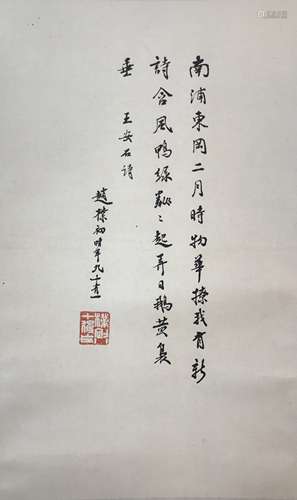 南浦東岡二月時物華撩我有新
詩含風鴨綠粼々起弄日鵝黃裊
垂 王安石詩
趙樸初時年九十一